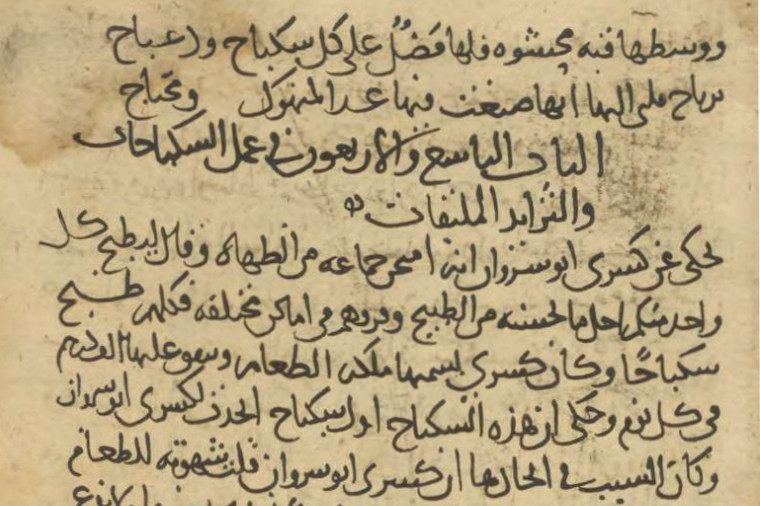 ووسطها قنه محشوه فلها فضل على كل سكباج و
الها انها صنعت فيها عدا المنهوك وتحتاج
الباب التاسع والاربعون في عمل السكباجات
والثرايد الملبقات
يحكى عن كسرى انوشروان انه امتحن جماعه من الطهاة وقال ليطبخ كل
واحد منكم اجل ما يحسنه من الطبيخ في اماكن مختلفه فكلهم طبخ
سكباجا وكان كسرى يسميها ملكه الطعام عليها
في كل يوم وحكى ان هذه السكباج اول سكباج اتخذت لكسرى انوشروان
وكان السبب في اتخاذها ان كسرى انوشروان قلت شهوته للطعام